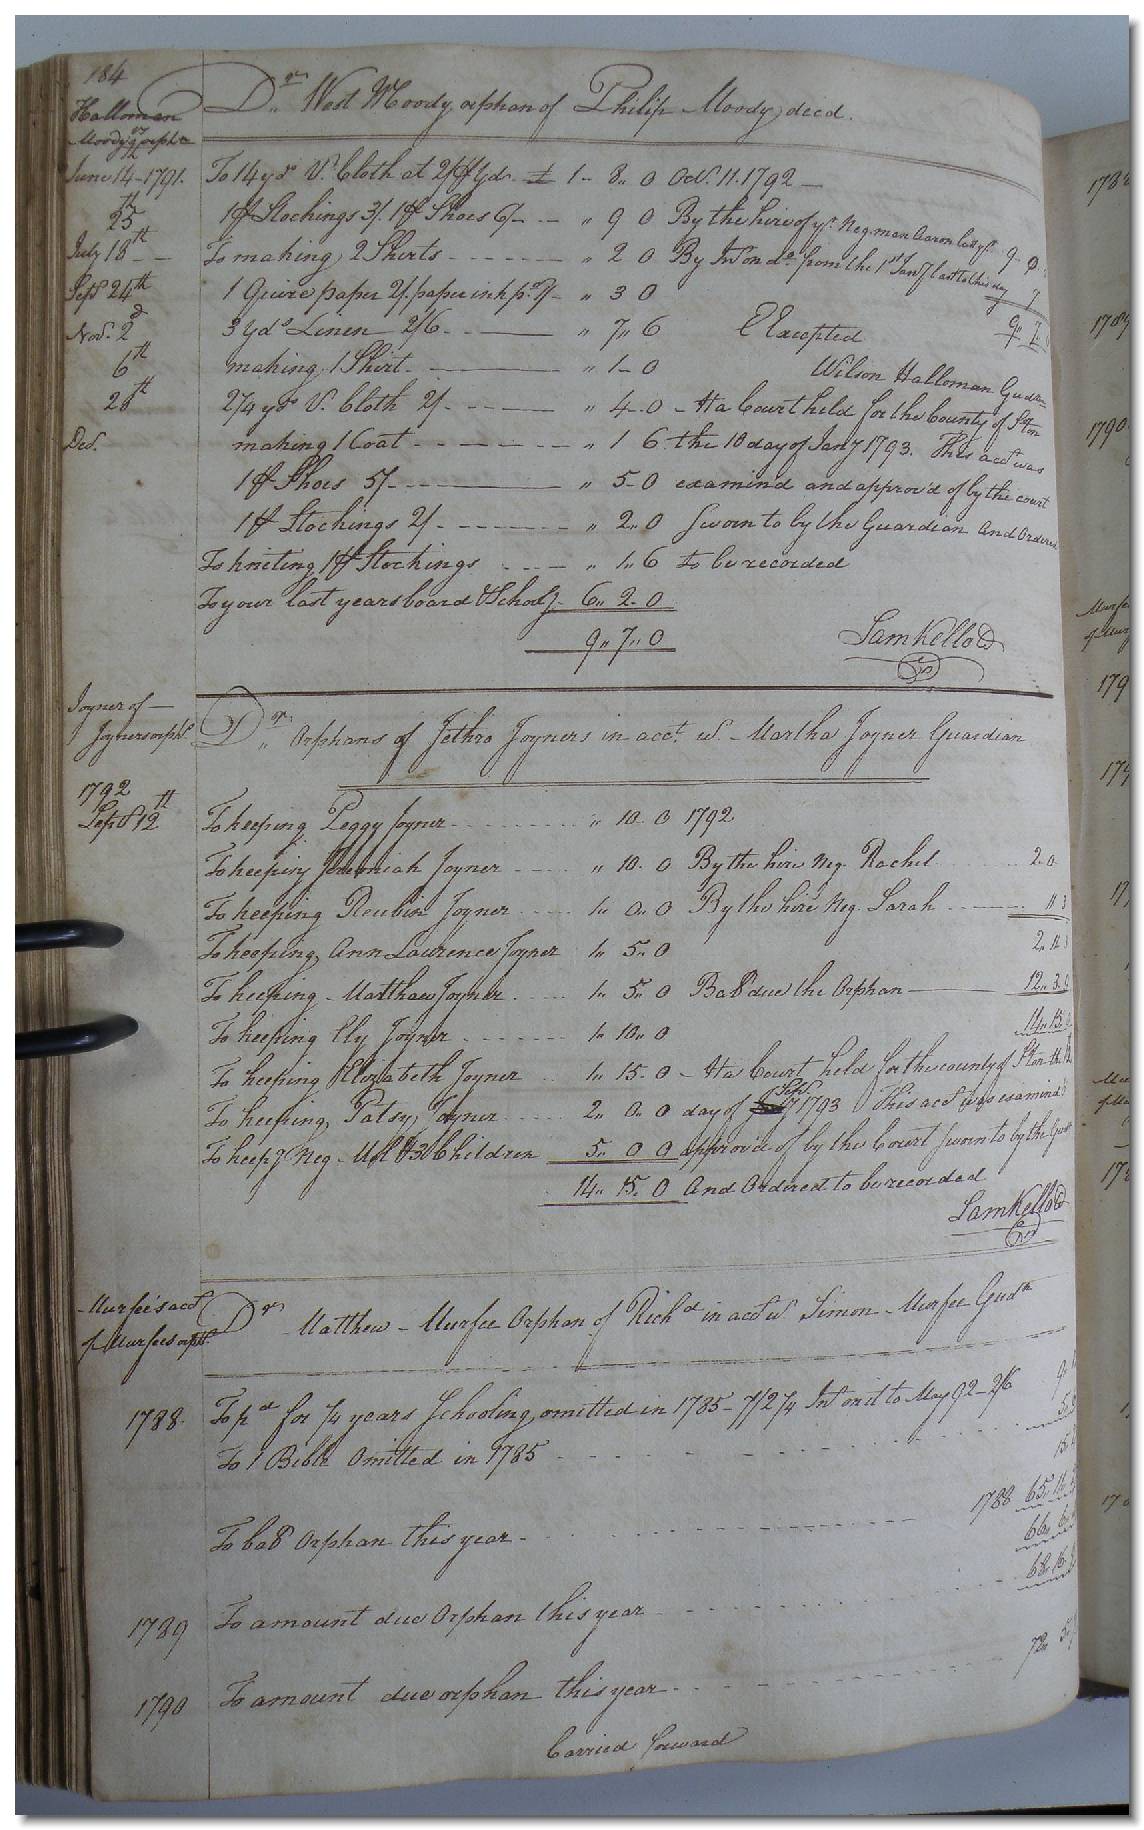 184
Halloman
Moody's orph
Dr. West Moody orphan of Philip Moody, decd.
June 14-1791. To 14 yds V. Cloth at 2/ Yd. £ 1- 8.. 0 Oct. 11. 1792 -
25th 1 pr Stockings 3/. 1 pr Shoes 6/- - - " 9 0 By the hire of yr. Neg man Aaron last yr. 9- 0
July 18th - - To making 2 Shirts - - - - - - " 2 0 By Int on do. from the 1st Jany last to this day 7
Sept 24th 1 Quire paper 2/. paper ink pr. 1/- " 3 0
Nov. 2d 3 Yds Linen 2/6. - - " 7.. 6 E Excepted 9.. 7..
6th making 1 Shirt. - " 1- 0 Wilson Halloman Guardn
28th 2 1/4 yds V. Cloth 2/. - - - - - " 4- 0 - At a Court held for the County of Ston
Decr. making 1 Coat - - - - - - - " 1 6 the 10 day of Jany 1793. This acct was
1 pr Shoes 5/- - - " 5- 0 examind and approv'd of by the court
1 pr Stockings 2/. - - - - - " 2.. 0 Sworn to by the Guardian And Ordered
To kniting 1 pr Stockings - - - - " 1.. 6 to be recorded
To your last years board & Schoolg. 6.. 2- 0
9.. 7.. 0
Sam Kello CC
Joyner of -
Joyners orphs.
Dr. Orphans of Jethro Joyners in acct. w. - Martha Joyner Guardian
1792
Sept 12th To keeping Peggy Joyner - - - - - " 10- 0 1792
To keeping Jeremiah Joyner - - - - " 10- 0 By the hire Neg. Rachel 2- 0
To keeping Reubin Joyner - - - - 1.. 0.. 0 By the hire Neg. Sarah - - - 11
To keeping, Ann Lawrence Joyner 1.. 5.. 0 2.. 11
To keeping - Matthew Joyner. - - - 1.. 5.. 0 Bal due the Orphan - 12.. 3. 0
To keeping Ely Joyner - - - - - 1.. 10.. 0 14.. 15.. 0
To keeping Elizabeth Joyner - - 1.. 15- 0 - At a Court held for the county of Ston the 12
To keeping, Patsy, Joyner - - - - 2.. 0.. 0 day of Sept 1793 This acct was examind
To keepg Neg - & 3 Children 5.. 0 0 approv'd of by the Court Sworn to by the Guar
14.. 15.. 0 And Ordered to be recorded
Sam Kello CC
Murfee's acct
of Murfees orph.
Dr. Matthew - Murfee Orphan of Richd in acct w. Simon - Murfee Gudn
1788. To pd for 1/4 years Schooling omitted in 1785 - 7/2 1/4 Int on it to May 92 - 2/6 9
To 1 Bible Omitted in 1785 - - - 5
15
1788 65.. 16..
To bal Orphan this year - - - 66.. 6
68. 16.
1789 To amount due Orphan this year - - -
72.. 5..
1790 To amount due orphan this year - - -
Carried forward
1789
1790
179